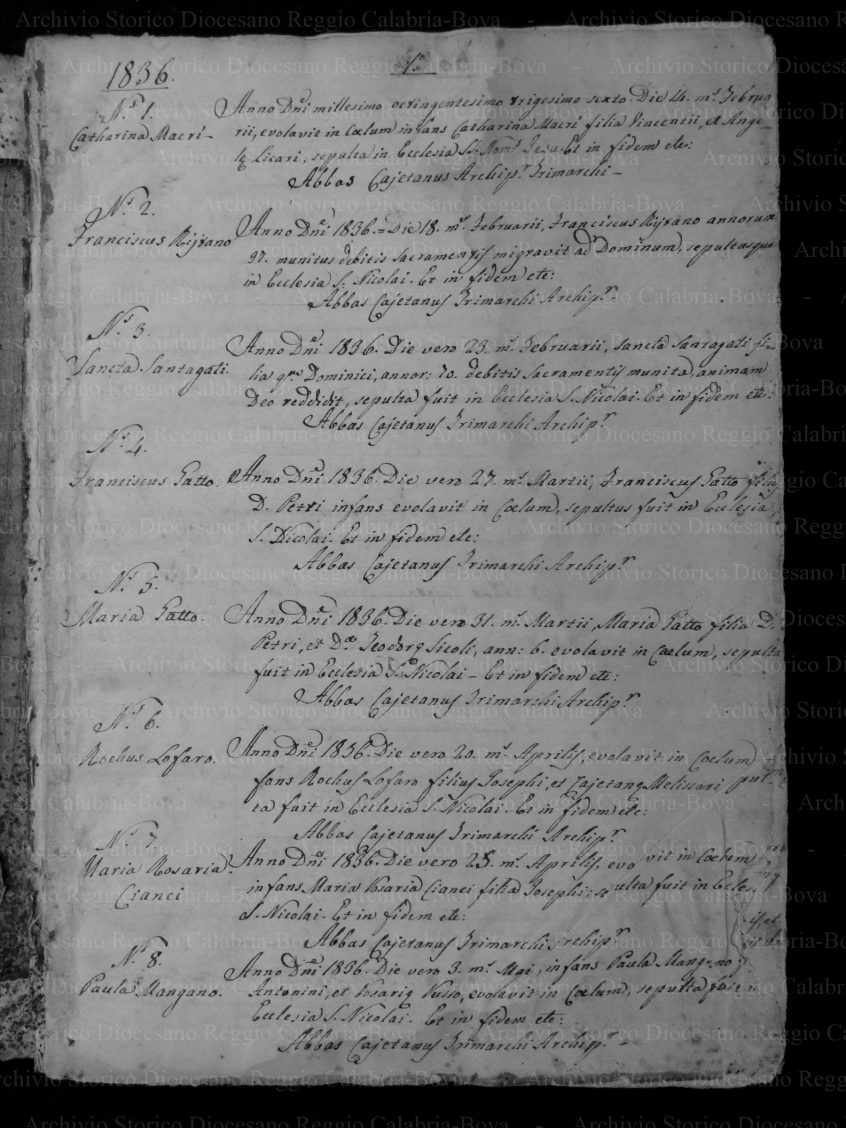 1836.
1.
N.° 1.
Catharina Macrì -
Anno Dñi millesimo octingentesimo trigesimo sexto. Die 14. m.s Februa
rii, evolavit in Cœlum infans Catharina Macrì filia Vincentii, et Ange-
lę Licari, sepulta in Ecclesia SS. Nom. Jesu. Et in fidem etc:
Abbas Cajetanus Archip.r Trimarchi -
N.° 2.
Franciscus
Anno Dñi 1836. = Die 18. m.s Februarii, Franciscus annorum
97. munitus debitis Sacramentis migravit ad Dominum, sepultusque
in Ecclesia S. Nicolai. Et in fidem etc:
Abbas Cajetanus Trimarchi Archip.r -
N.° 3.
Sancta Santagati.
Anno Dñi 1836. Die vero 23. m.s Februarii, Sancta Santagati fi-
lia q.m Dominici, annor: 70. debitis Sacramentis munita, animam
Deo reddidit, sepulta fuit in Ecclesia S. Nicolai. Et in fidem etc:
Abbas Cajetanus Trimarchi Archip.r
N.° 4.
Franciscus Gatto.
Anno Dñi 1836. Die vero 27. m.s Martii, Franciscus Gatto filiu
D. Petri infans evolavit in Cœlum, sepultus fuit in Ecclesia
S. Nicolai. Et in fidem etc:
Abbas Cajetanus Trimarchi Archip.r
N.° 5.
Maria Gatto.
Anno Dñi 1836. Die vero 31. m.s Martii, Maria Gatto filia D.
Petri, et D.æ Teodorę Sicoli, ann: 6. evolavit in Cælum, sepulta
fuit in Ecclesia S. Nicolai - Et in fidem etc:
Abbas Cajetanus Trimarchi Archip.r
N.° 6.
Rochus Lofaro.
Anno Dñi 1836. Die vero 20. m.s Aprilis, evolavit in Cœlum
fans Rochus Lofaro filius Josephi, et Cajetanę Melissari
ta fuit in Ecclesia S. Nicolai. Et in fidem etc:
Abbas Cajetanus Trimarchi Archip.r
N.° 7.
Maria Rosaria
Cianci
Anno Dñi 1836. Die vero 25. m.s Aprilis, evo vit in Cœlum
infans Maria Rosaria Cianci filia Josephi: se ulta fuit in Eccles.
S. Nicolai. Et in fidem etc:
Abbas Cajetanus Trimarchi rchip.r
N.° 8.
Paula Mangano.
Anno Dñi 1836. Die vero 3. m.s Mai, infans Paula Mangano
Antonini, et Rosarię Russo, evolavit in Cœlum, sepulta fuit
Ecclesia S. Nicolai. Et in fidem etc:
Abbas Cajetanus Trimarchi Archip.r -
Archivio Storico Diocesano Reggio Calabria-Bova